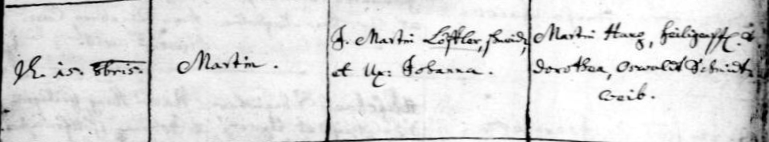 15. 8bris.
Martin.
J. Martin Löffler, schmidt,
et Ux: Johanna.
Martin Haug, heiligenpfl. &
dorothea, Oswaldt Schmidts
weib.